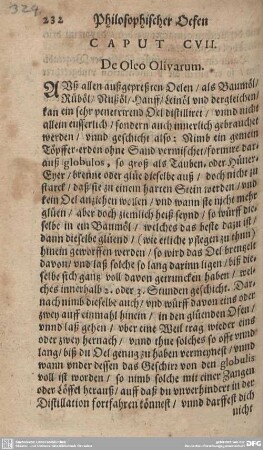 324.
232 Philosophischer Oefen
CAPUT CVII.
De Oleo Olivarum.
AUß allen außgepreßten Oelen / als Baumöl/
Rüböl/ Nußöl/ Hanff/ Leinöl und dergleichen/
kan ein sehr penetrirend Oel distilliret / vnnd nicht
allein eusserlich / sondern auch innerlich gebrauchet
werden / vnnd geschicht also: Nimb ein gemein
Töpffer-erden ohne Sand vermischet / formire dar-
auß globulos, so groß als Tauben- oder Hüner-
Eyer / brenne oder glüe dieselbe auß / doch nicht zu
starck / daß sie zu einem harten Stein werden / vnd
kein Oel anziehen wollen / vnd wann sie nicht mehr
glüen / aber doch ziemlich heiß seynd / so würff die-
selbe in ein Baumöl / welches das beste dazu ist /
dann dieselbe glüend / (wie etliche pflegen zu thun)
hinein geworffen werden / so wird das Oel brentzelt
davon / vnd laß solche so lang darinn ligen / biß die-
selbe sich gantz voll davon getruncken haben / wel-
ches innerhalb 2. oder 3. Stunden geschicht. Dar-
nach nimb dieselbe auch / vnd würff davon eins oder
zwey auff einmahl hinein / in den glüenden Ofen /
vnnd laß gehen / vber eine Weil trag wieder eins
oder zwey hernach / vnnd thue solches so offt vnnd
lang / biß du Oel genug zu haben vermeynest / vnnd
wann vnder dessen das Geschirr von den globulis
voll ist worden / so nimb solche mit einer Zangen
oder Löffel herauß / auff daß du vnverhindert in der
Distillation fortfahren könnest / vnnd darffest dich
nicht